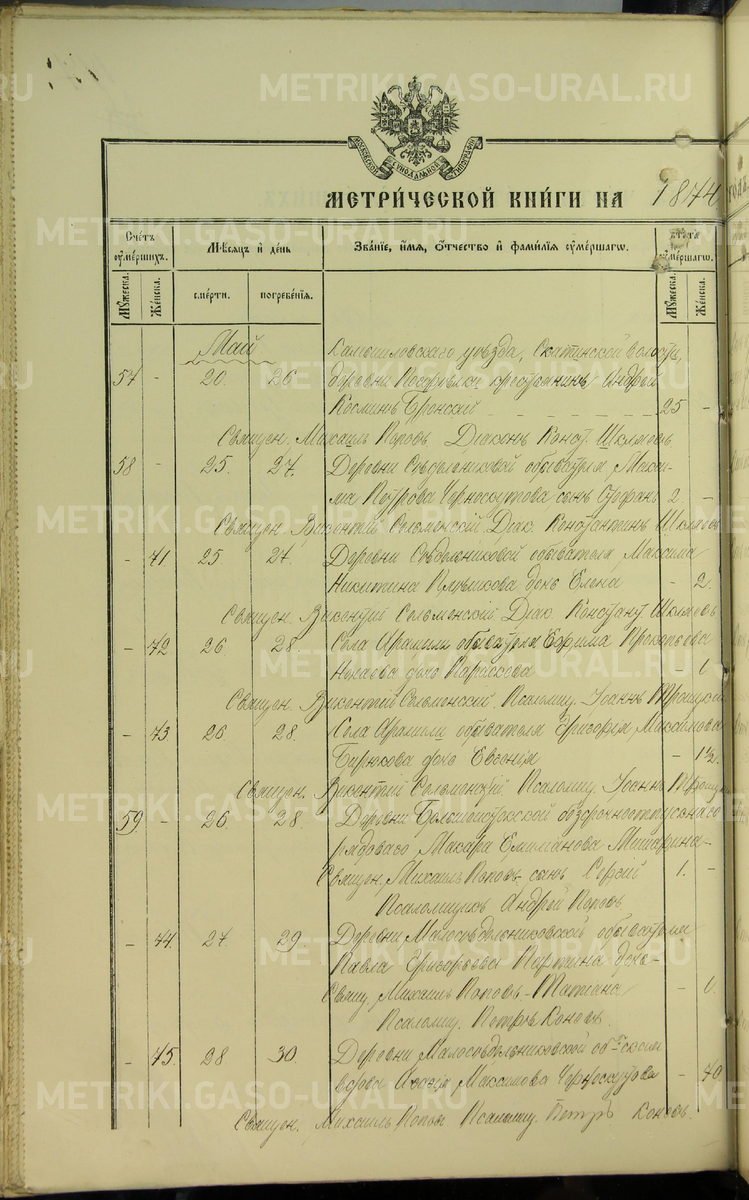 МЕТРИ́ЧЕСКОЙ КНИ́ГИ НА 1874
Сче́тъ ѹ҆ме́ршихъ. Мѣ́сяцъ и҆ де́нь Зва́нїе, и҆́мѧ, ѻ҆́тчество и҆ фами́лїѧ ѹ҆ме́ршагѡ. Лѣта ѹ҆ме́ршагѡ.
Мꙋ́жеска. Же́нска. сме́рти. погребе́нїѧ. Мꙋ́жеска. Же́нска.
Май Камышловскаго уѣзда, Скатинской волости,
57 - 20. 26 деревни крестьянинъ Андрей
Косминъ 25 -
Священ. Михаилъ Поповъ Діаконъ Конст. Шкляевъ
58 - 25. 27. Деревни Сѣдѣльниковой обывателя Макси-
ма Петрова Черноскутова сынъ Стефанъ 2. -
Священ. Викентій Сельменскій. Діак. Константинъ Шкляевъ
- 71 25 27. Деревни Сѣдѣльниковой обывателя Максима
Никитина дочь Елена - 2.
Священ. Викентій Сельменскій Діак. Констант. Шкляевъ
- 72 26 28. Села Арамили обывателя Ефима Прокопьева
дочь Параскева - 1
Священ. Викентій Сельменскій. Псаломщ. Іоаннъ Троицкій
- 73 26 28. Села Арамили обывателя Григорія Максимова
Бирюкова дочь Евгенія - 1½.
Священ. Викентій Сельменскій. Псаломщ. Іоаннъ
59 - 26. 28. Деревни Большеистокской безсрочноотпускнаго
рядоваго Макара Емельянова Мишарина
Священ. Михаилъ Поповъ сынъ Сергій 1. -
Псаломщикъ Андрей Поповъ
- 74 27. 29 Деревни Малосѣдѣльниковской обывателя
Павла Григорьева дочь
Свящ. Михаилъ Поповъ - Татіана -
Псаломщ. Петръ Коновъ.
- 75 28 30. Деревни Малосѣдѣльниковской
вдова Максимова Черноскутова - 40
Священ. Михаилъ Поповъ Псаломщ. Петръ Коновъ.
METRIKI.GASO-URAL.RU